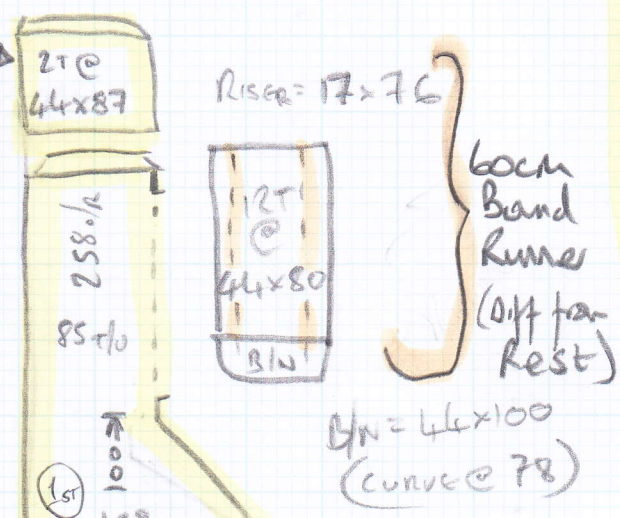 2T @
44x87
RISER = 17x76
12T
@
44x80
B/N
60cm
Band
Runner
(Diff from
Rest)
258 o/R
85 T/U
B/N = 44x100
(CURVE @ 78)
1ST
100